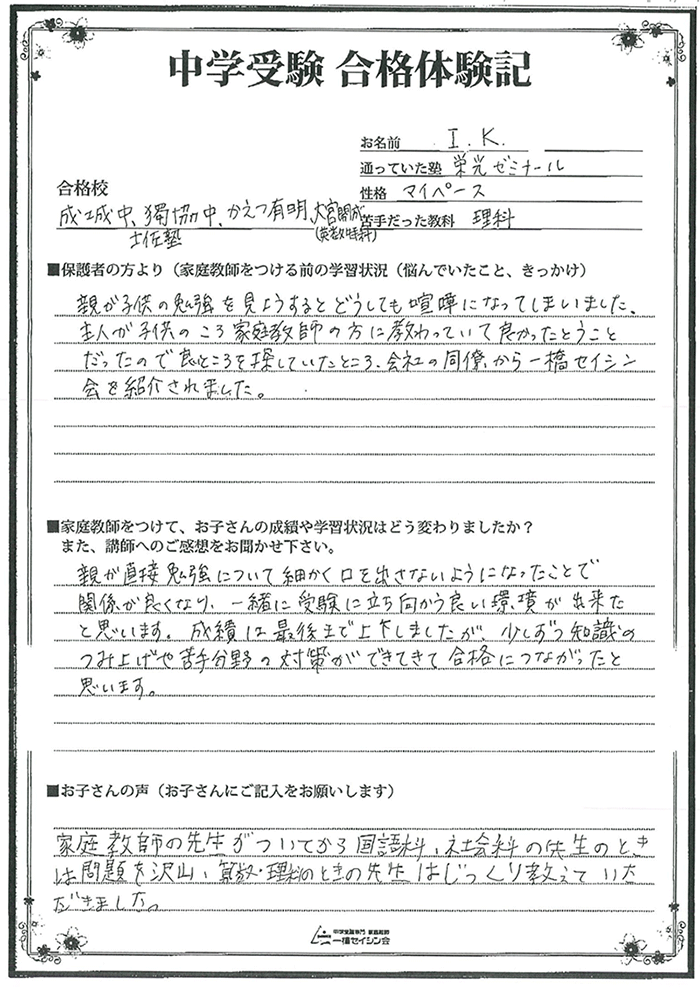 中学受験 合格体験記
お名前 I.K.
通っていた塾 栄光ゼミナール
性格 マイペース
苦手だった教科 理科
合格校
成城中、獨協中、かえつ有明、大宮開成
土佐塾 (英数特科)
■保護者の方より（家庭教師をつける前の学習状況（悩んでいたこと、きっかけ）
親が子供の勉強を見ようするとどうしても喧嘩になってしまいました。
主人が子供のころ家庭教師の方に教わっていて良かったとうこと
だったので良ところを探していたところ、会社の同僚から一橋セイシン
会を紹介されました。
■家庭教師をつけて、お子さんの成績や学習状況はどう変わりましたか？
また、講師へのご感想をお聞かせ下さい。
親が直接勉強について細かく口を出さないようになったことで
関係が良くなり、一緒に受験に立ち向かう良い環境が出来た
と思います。成績は最後まで上下しましたが、少しずつ知識の
つみ上げや苦手分野の対策ができてきて合格につながったと
思います。
■お子さんの声（お子さんにご記入をお願いします）
家庭教師の先生がついてから国語科、社会科の先生のとき
は問題を沢山、算数・理科のときの先生はじっくり教えていた
だきました。
中学受験専門 家庭教師
一橋セイシン会